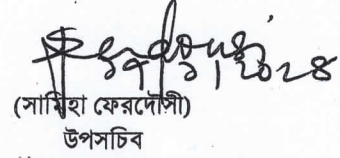 ২৭|১|২০২৪
(সামিহা ফেরদৌসী)
উপসচিব